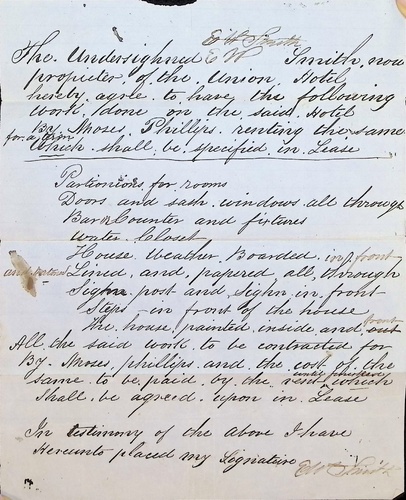 E W Smith
The Undersighned E W Smith, now
propieter of the Union Hotel
hereby agree to have the following
work done on the said Hotel
By Moses Phillips renting the same
for a term
Which shall be specified in Lease
Partionions for rooms
Doors and sash windows all through
Bar & Counter and fixtures
Water Closet
House Weather Boarded in front
Lined and papered all through
Sighn post and Sighn in front
Steps in front of the house
the house painted inside and out
front
All the said work to be contracted for
By Moses phillips and the cost of the
same to be paid by the rent which
shall be agreed upon in Lease
In testimony of the above I have
Hereunto placed my Signature
E W Smith